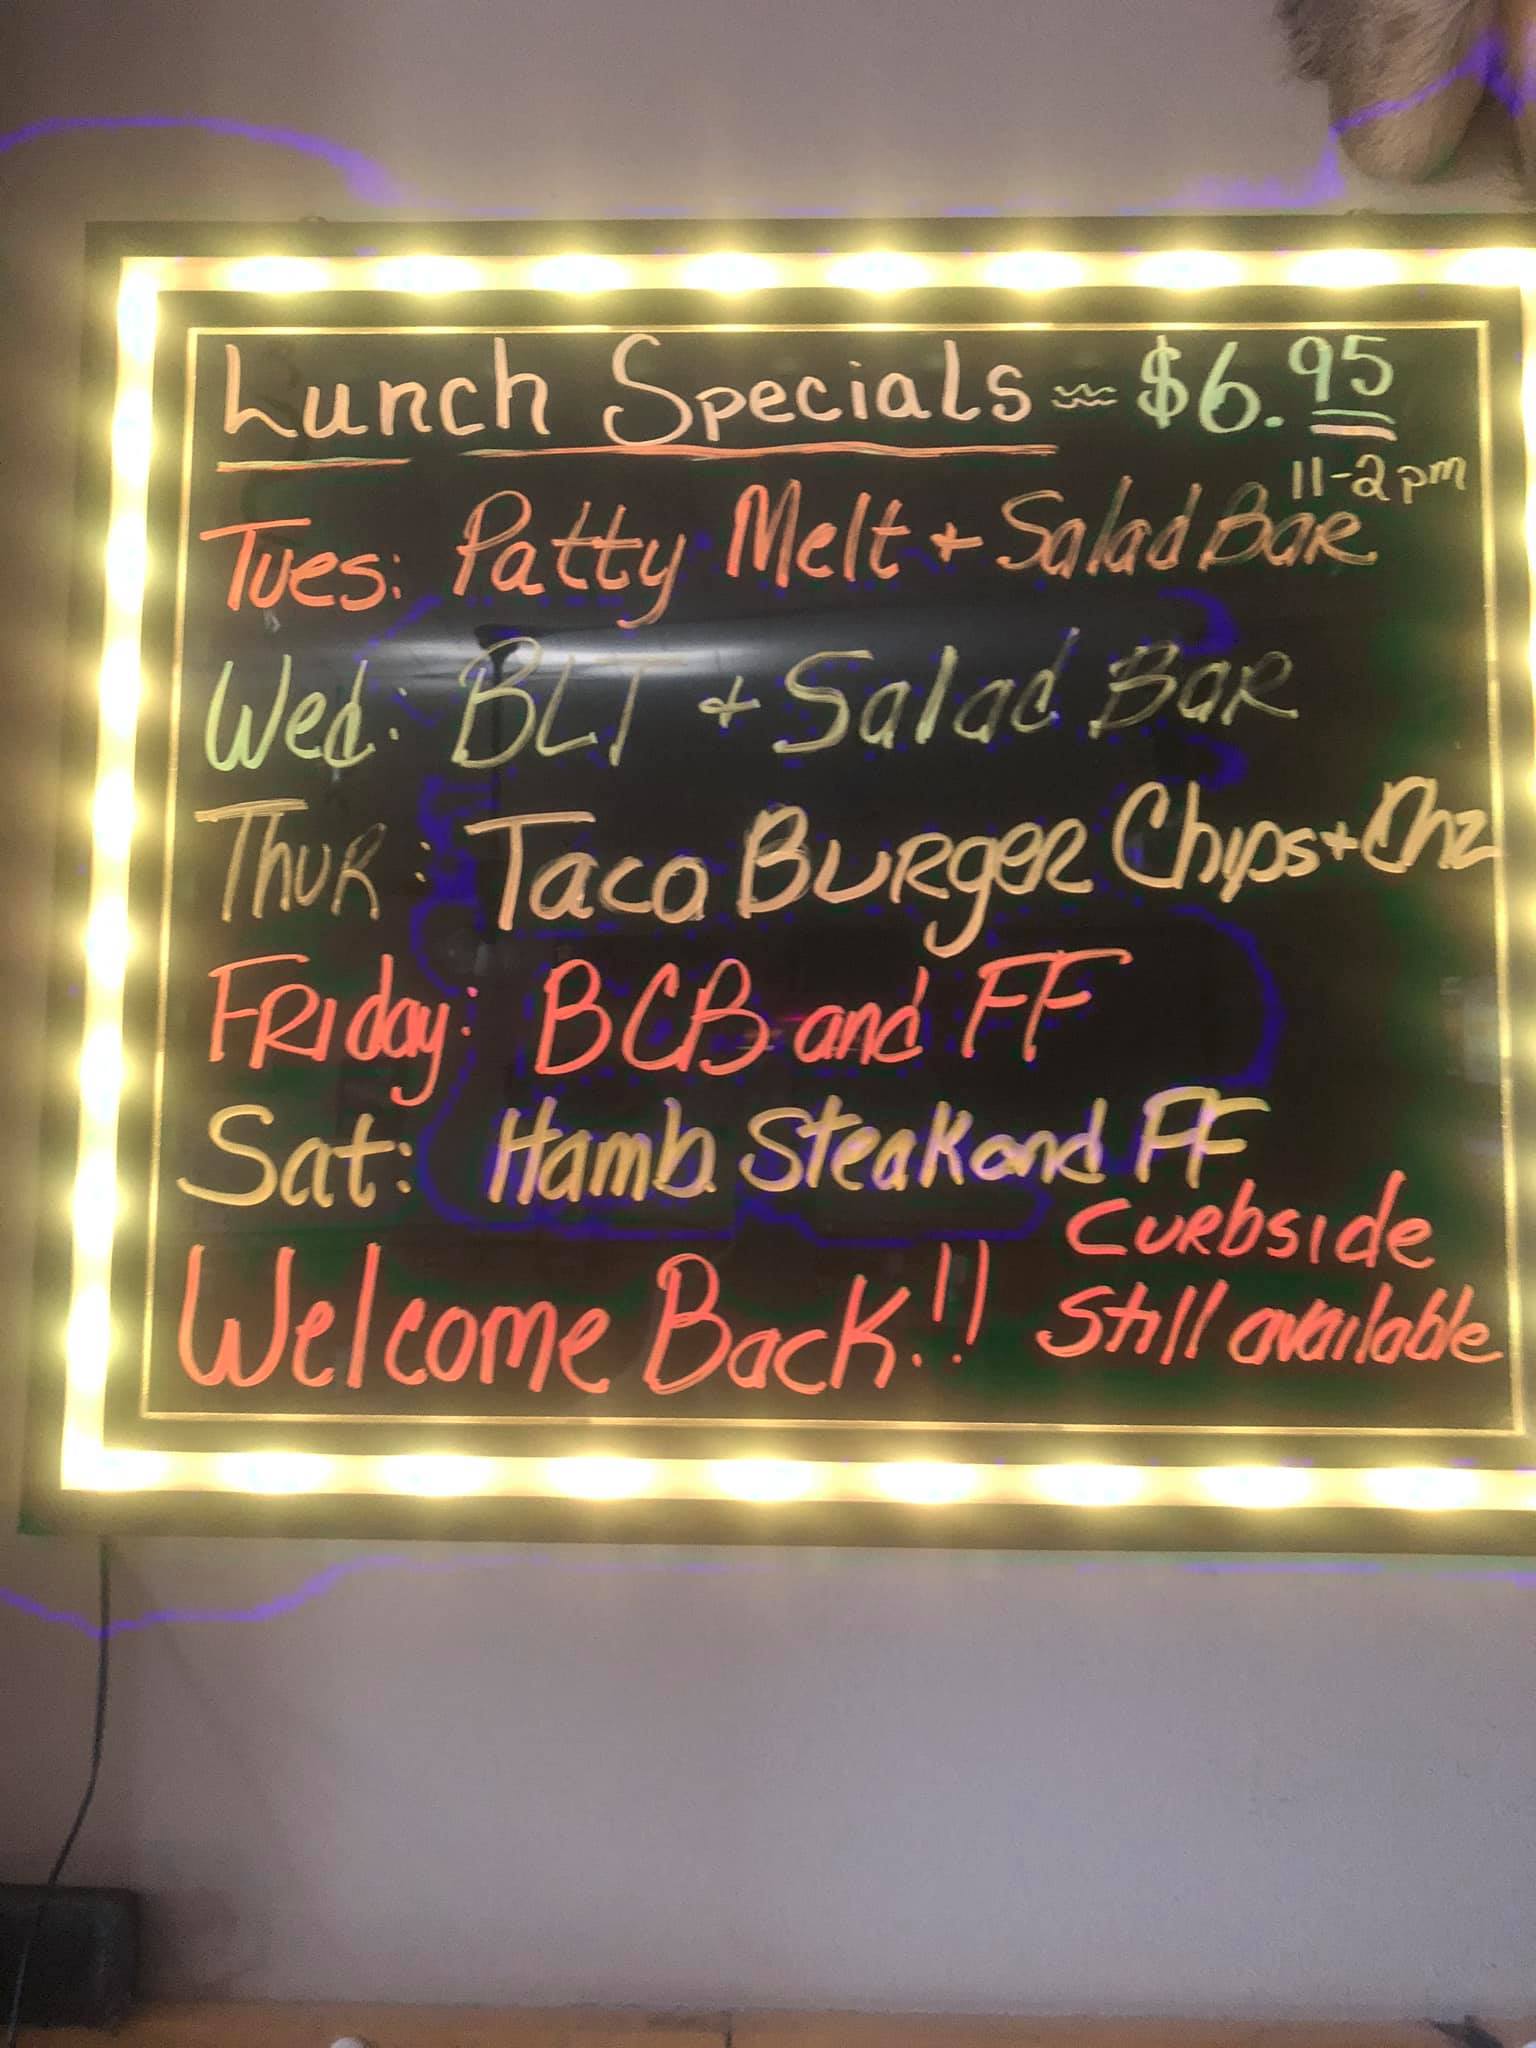 Lunch Specials ~ $6.95
11-2pm
Tues: Patty Melt + Salad Bar
Wed: BLT + Salad Bar
Thur: Taco Burger Chips + Chz
Friday: BCB and FF
Sat: Hamb Steak and FF
Curbside
Welcome Back!! Still available